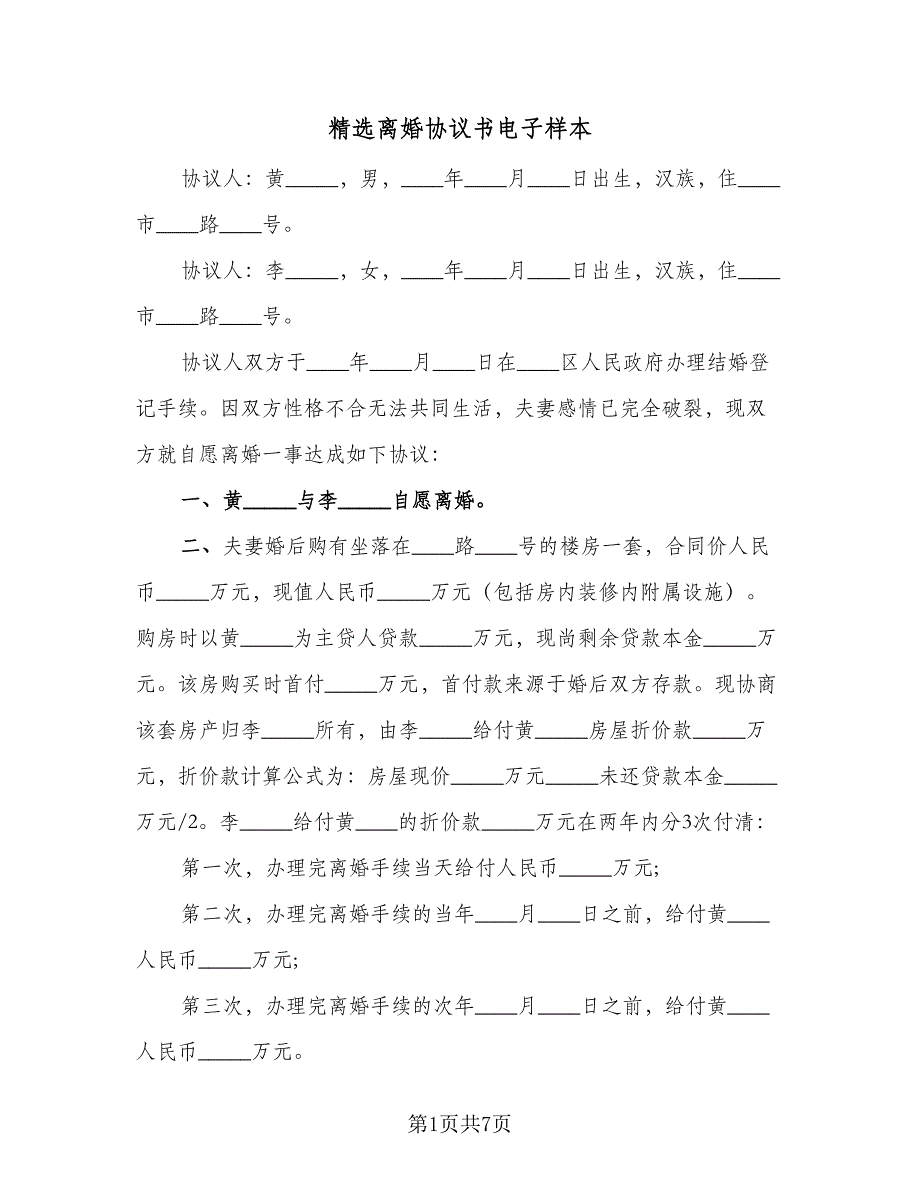 精选离婚协议书电子样本
协议人：黄_____，男，____年____月____日出生，汉族，住____
市____路____号。
协议人：李_____，女，____年____月____日出生，汉族，住____
市____路____号。
协议人双方于____年____月____日在____区人民政府办理结婚登
记手续。因双方性格不合无法共同生活，夫妻感情已完全破裂，现双
方就自愿离婚一事达成如下协议：
一、黄_____与李_____自愿离婚。
二、夫妻婚后购有坐落在____路____号的楼房一套，合同价人民
币_____万元，现值人民币_____万元（包括房内装修内附属设施）。
购房时以黄_____为主贷人贷款_____万元，现尚剩余贷款本金_____万
元。该房购买时首付_____万元，首付款来源于婚后双方存款。现协商
该套房产归李_____所有，由李_____给付黄_____房屋折价款_____万
元，折价款计算公式为：房屋现价_____万元_____未还贷款本金_____
万元/2。李_____给付黄____的折价款_____万元在两年内分3次付清：
第一次，办理完离婚手续当天给付人民币_____万元;
第二次，办理完离婚手续的当年____月____日之前，给付黄____
人民币_____万元;
第三次，办理完离婚手续的次年____月____日之前，给付黄____
人民币_____万元。
第1页共7页